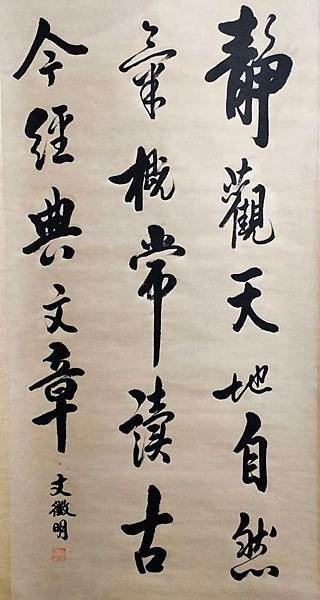 靜觀天地自然
氣概常讀古
今經典文章
文徵明